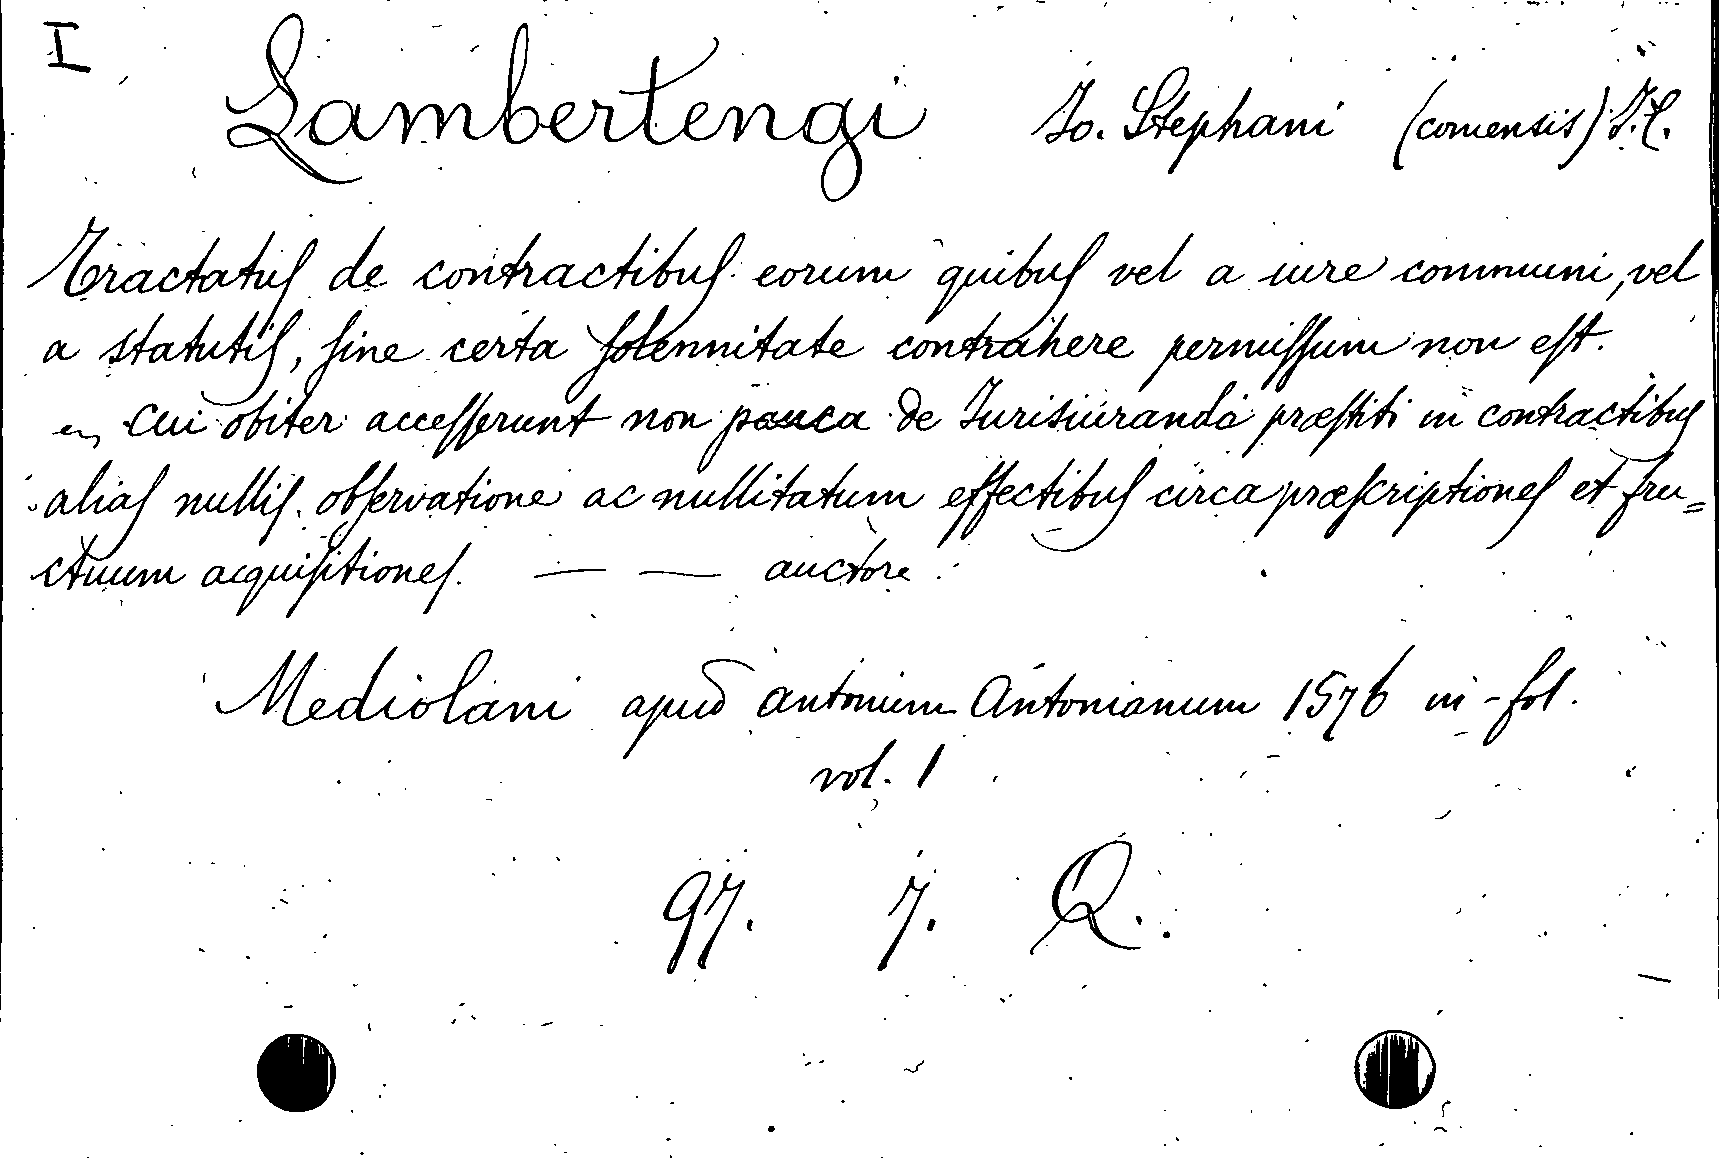 I
Lambertengi Jo. Stephani (comensis) J.C.
Tractatuſ de contractibuſ eorum quibuſ vel a iure communi, vel
a statutiſ, ſine certa ſolennitate contrahere permiſſum non eſt.
Cui obiter acceſſerunt non pauca de Jurisiurandi præſtiti in contractibuſ
aliaſ nulliſ. obſervatione ac nullitatum effectibuſ circa præſcriptioneſ et fru=
ctuum acquiſitioneſ. — — auctore.
Mediolani apud antonium Antonianum 1576 in-fol.
vol. 1
97. 7. Q.